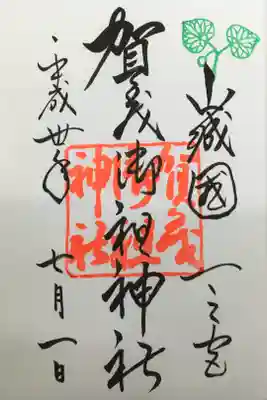 山城國 一之宮
賀茂御祖神社
平成卅年 七月一日
賀茂
御祖
神社